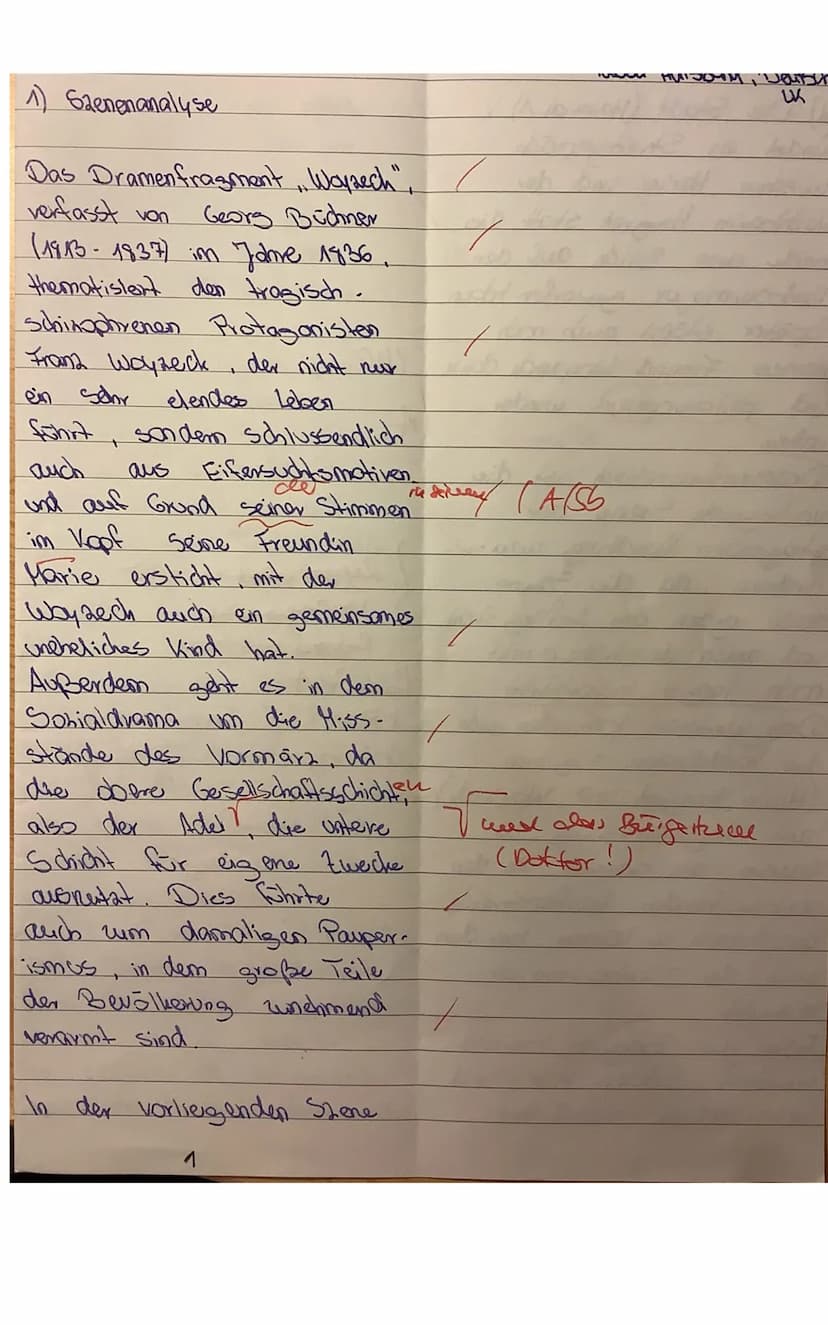 Deutsch
LK
1) Szenenanalyse
Das Dramenfragment „Woyzeck",
verfasst von Georg Büchner
(1813 - 1837) im Jahre 1836,
thematisiert den tragisch-
schizophrenen Protagonisten
Franz Woyzeck, der nicht nur
ein sehr elendes Leben
führt, sondern schlussendlich
auch aus Eifersuchtsmotiven
der
und auf Grund seiner Stimmen / ( A/Sb
im Kopf seine Freundin
Marie ersticht, mit der
Woyzeck auch ein gemeinsames
uneheliches Kind hat.
Außerdem geht es in dem
Sozialdrama um die Miss-
stände des Vormärz, da
die obere Gesellschaftsschichten,
also der Adel, die untere √ und das Bürgertum
Schicht für eigene Zwecke (Doktor!)
ausnutzt. Dies führte
auch zum damaligen Pauper-
ismus, in dem große Teile
der Bevölkerung zunehmend
verarmt sind.
In der vorliegenden Szene
1